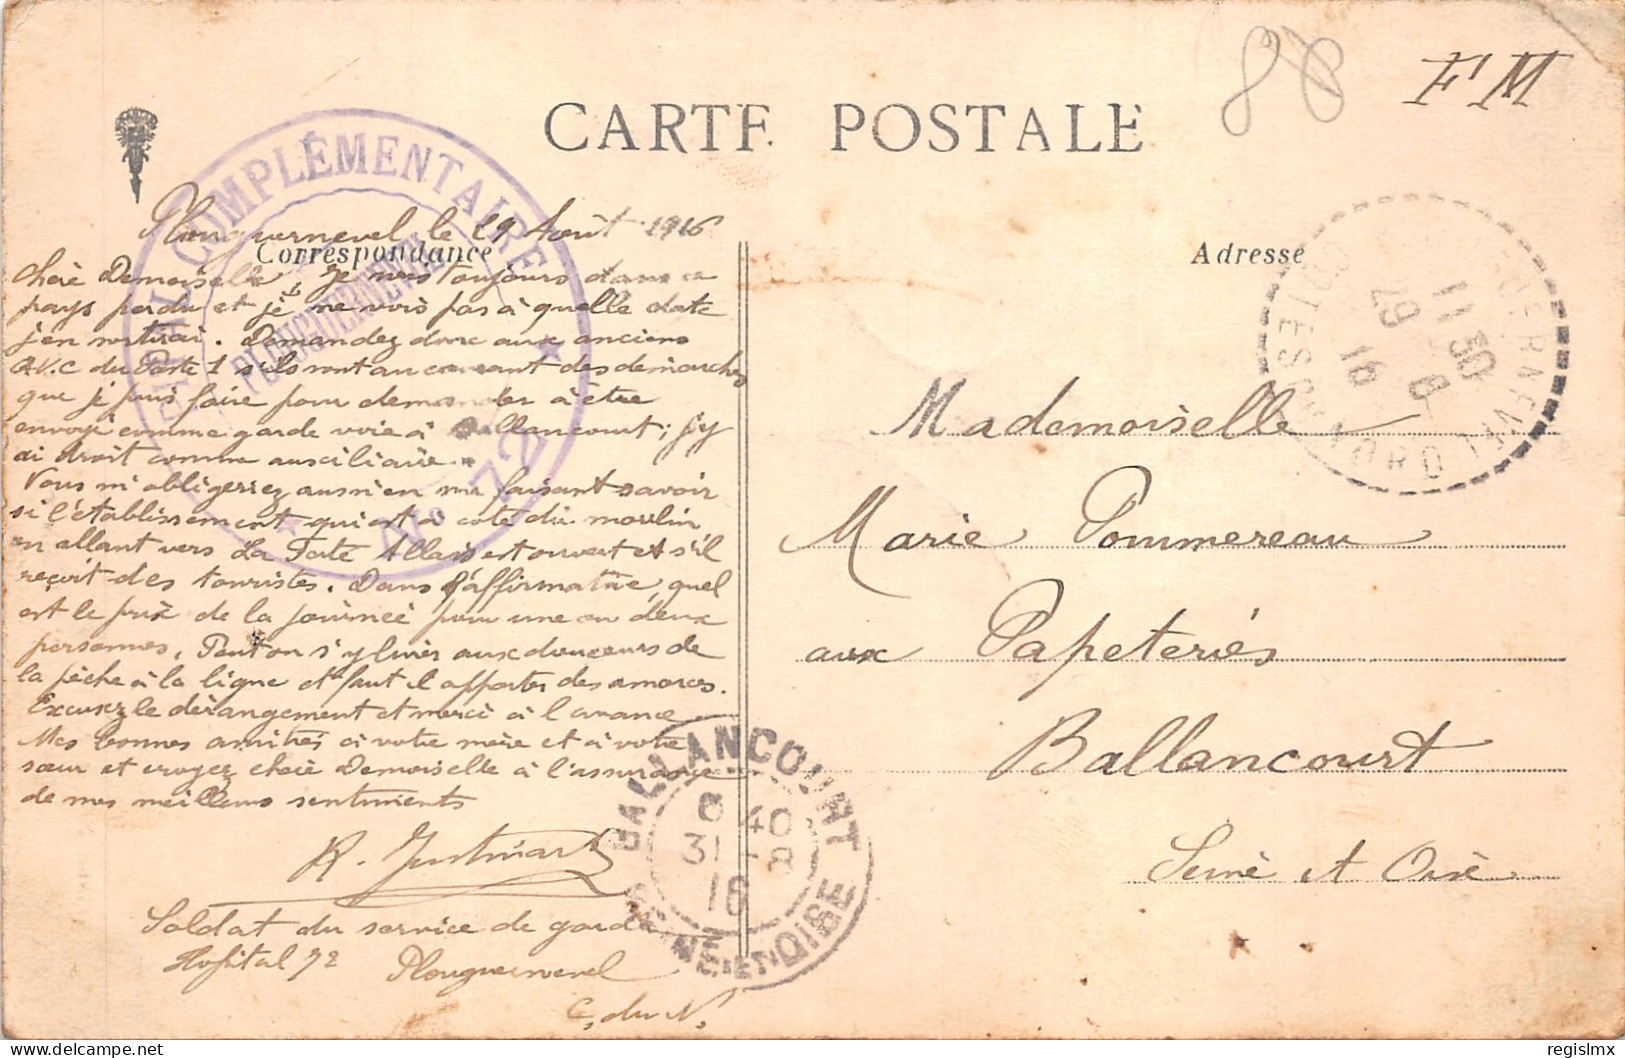 CARTE POSTALE
F M
Plouguernevel le 29 Août 1916
Correspondance
Adresse
Chère Demoiselle, Je suis toujours dans ce
pays perdu et je ne vois pas à quelle date
j'en sortirai. Demandez donc aux anciens
G.V.C du Poste 1 s'ils sont au courant des démarches
que je puis faire pour demander à être
envoyé comme garde voie à Ballancourt; j'y
ai droit comme auxiliaire.
Vous m'obligeriez aussi en me faisant savoir
si l'établissement qui est à coté du moulin
en allant vers La Ferté Allais est ouvert et s'il
reçoit des touristes. Dans l'affirmative, quel
est le prix de la journée pour une ou deux
personnes. Peut on s'y livrer aux douceurs de
la pèche à la ligne et faut il apporter des amorces.
Excusez le dérangement et merci à l'avance
Mes bonnes amitiés à votre mère et à votre
sœur et croyez chère Demoiselle à l'assurance
de mes meilleurs sentiments
R.
Soldat du service de garde
Hopital 72 Plouguernevel
C. du N.
Mademoiselle
Marie Pommereau
aux Papeteries
Ballancourt
Seine et Oise
COMPLÉMENTAIRE
PLOUGUERNEVEL
No 72
COTES-DU-NORD
11 30
29 8
16
BALLANCOURT
6 40
31 -8
16
SEINE-ET-OISE
regislmx
delcampe.net